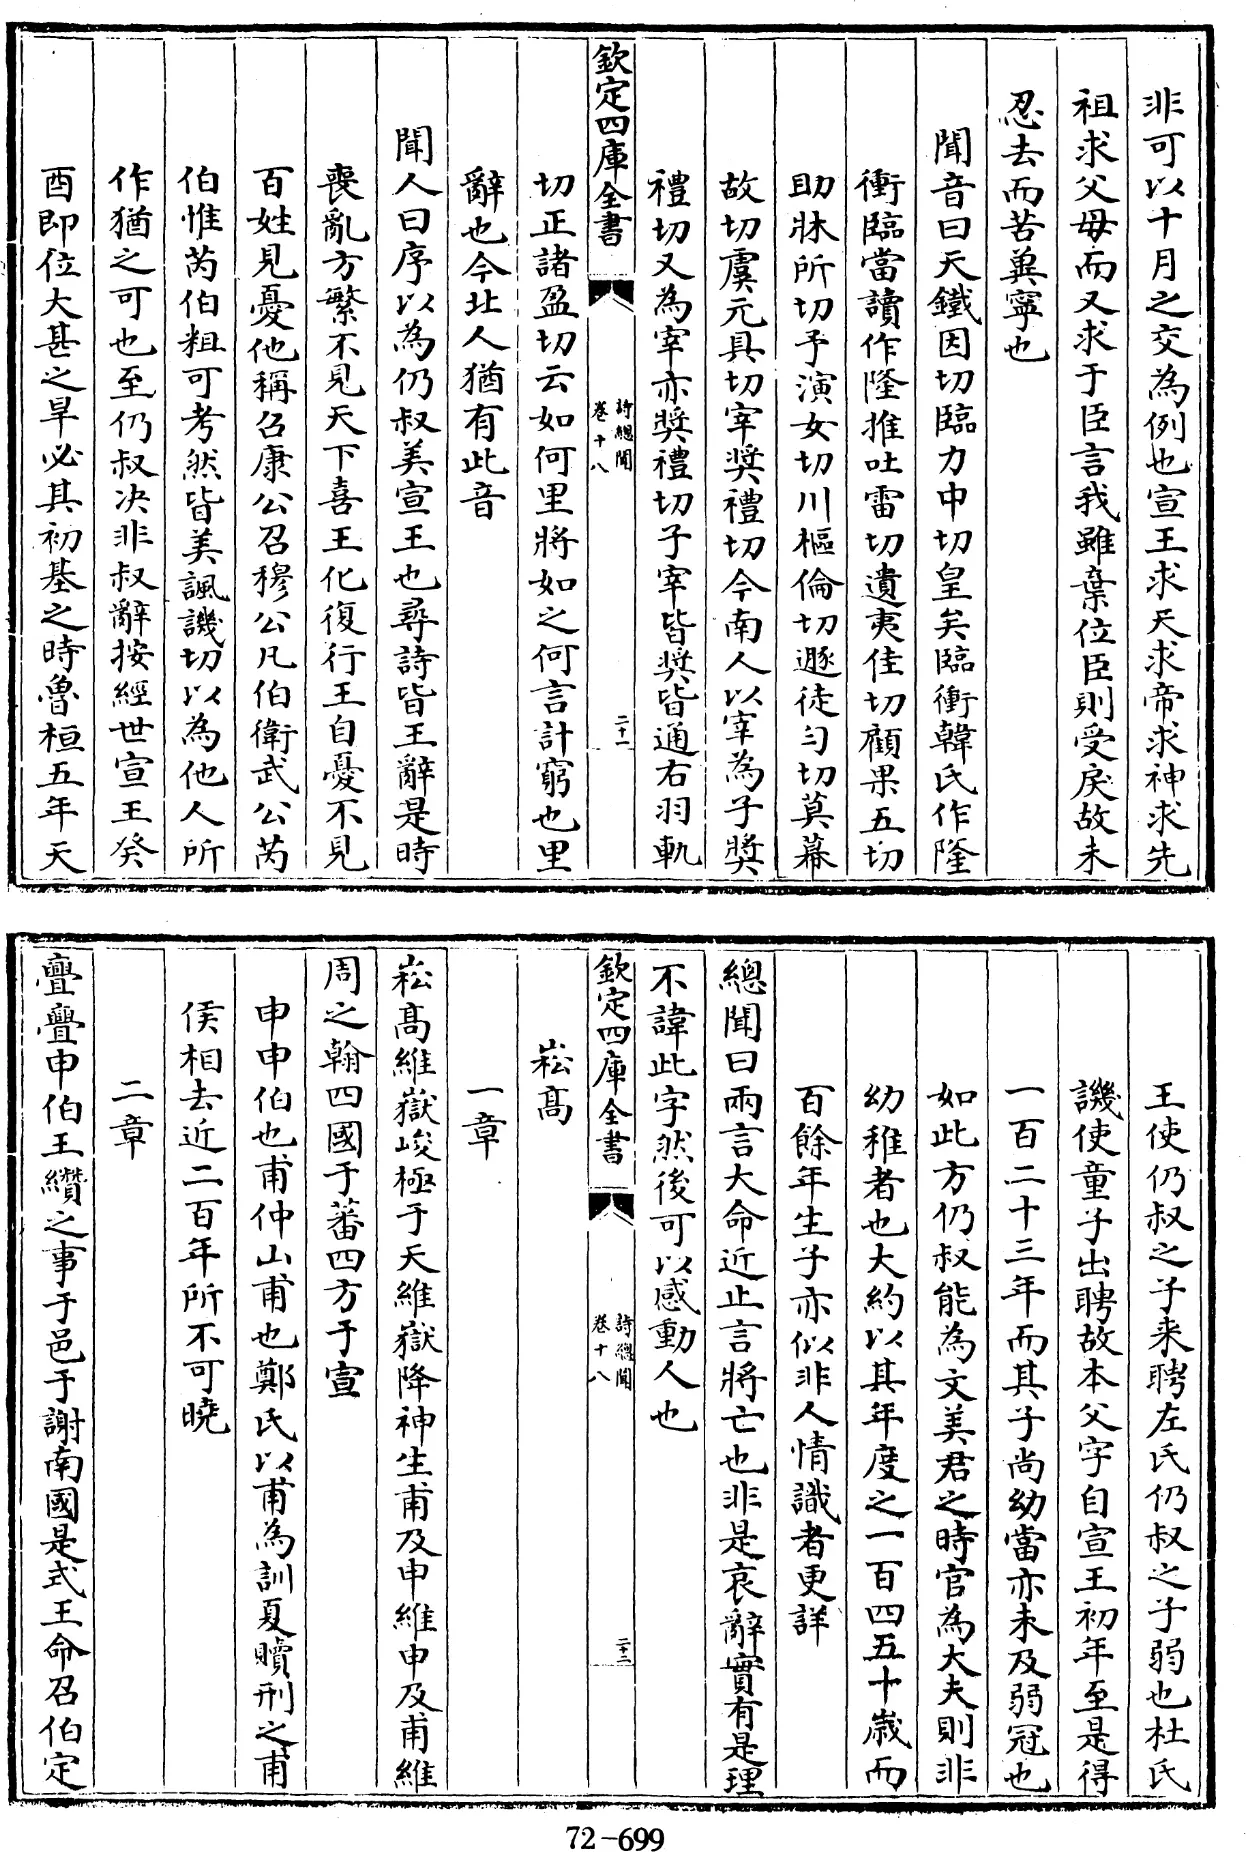 非可以十月之交為例也宣王求天求帝求神求先
祖求父母而又求于臣言我雖棄位臣則受戾故未
忍去而苦冀寧也
聞音曰天鐵因切臨力中切皇矣臨衝韓氏作隆
衝臨當讀作隆推吐雷切遺夷佳切顧果五切
助牀所切予演女切川樞倫切遯徒勻切莫幕
故切虞元具切宰奨禮切今南人以宰為子奨
禮切又為宰亦奨禮切子宰皆奨皆通右羽軌
欽定四庫全書
詩總聞
卷十八
二十一
切正諸盈切云如何里將如之何言計窮也里
辭也今北人猶有此音
聞人曰序以為仍叔美宣王也尋詩皆王辭是時
喪亂方繁不見天下喜王化復行王自憂不見
百姓見憂他稱召康公召穆公凡伯衛武公芮
伯惟芮伯粗可考然皆美諷譏切以為他人所
作猶之可也至仍叔决非叔辭按經世宣王癸
酉即位大甚之旱必其初基之時魯桓五年天
王使仍叔之子來聘左氏仍叔之子弱也杜氏
譏使童子出聘故本父字自宣王初年至是得
一百二十三年而其子尚幼當亦未及弱冠也
如此方仍叔能為文美君之時官為大夫則非
幼稚者也大約以其年度之一百四五十歲而
百餘年生子亦似非人情識者更詳
總聞曰兩言大命近止言將亡也非是哀辭實有是理
不諱此字然後可以感動人也
欽定四庫全書
詩總聞
卷十八
二十二
崧髙
一章
崧髙維嶽峻極于天維嶽降神生甫及申維申及甫維
周之翰四國于蕃四方于宣
申申伯也甫仲山甫也鄭氏以甫為訓夏贖刑之甫
侯相去近二百年所不可曉
二章
亹亹申伯王纘之事于邑于謝南國是式王命召伯定
72-699